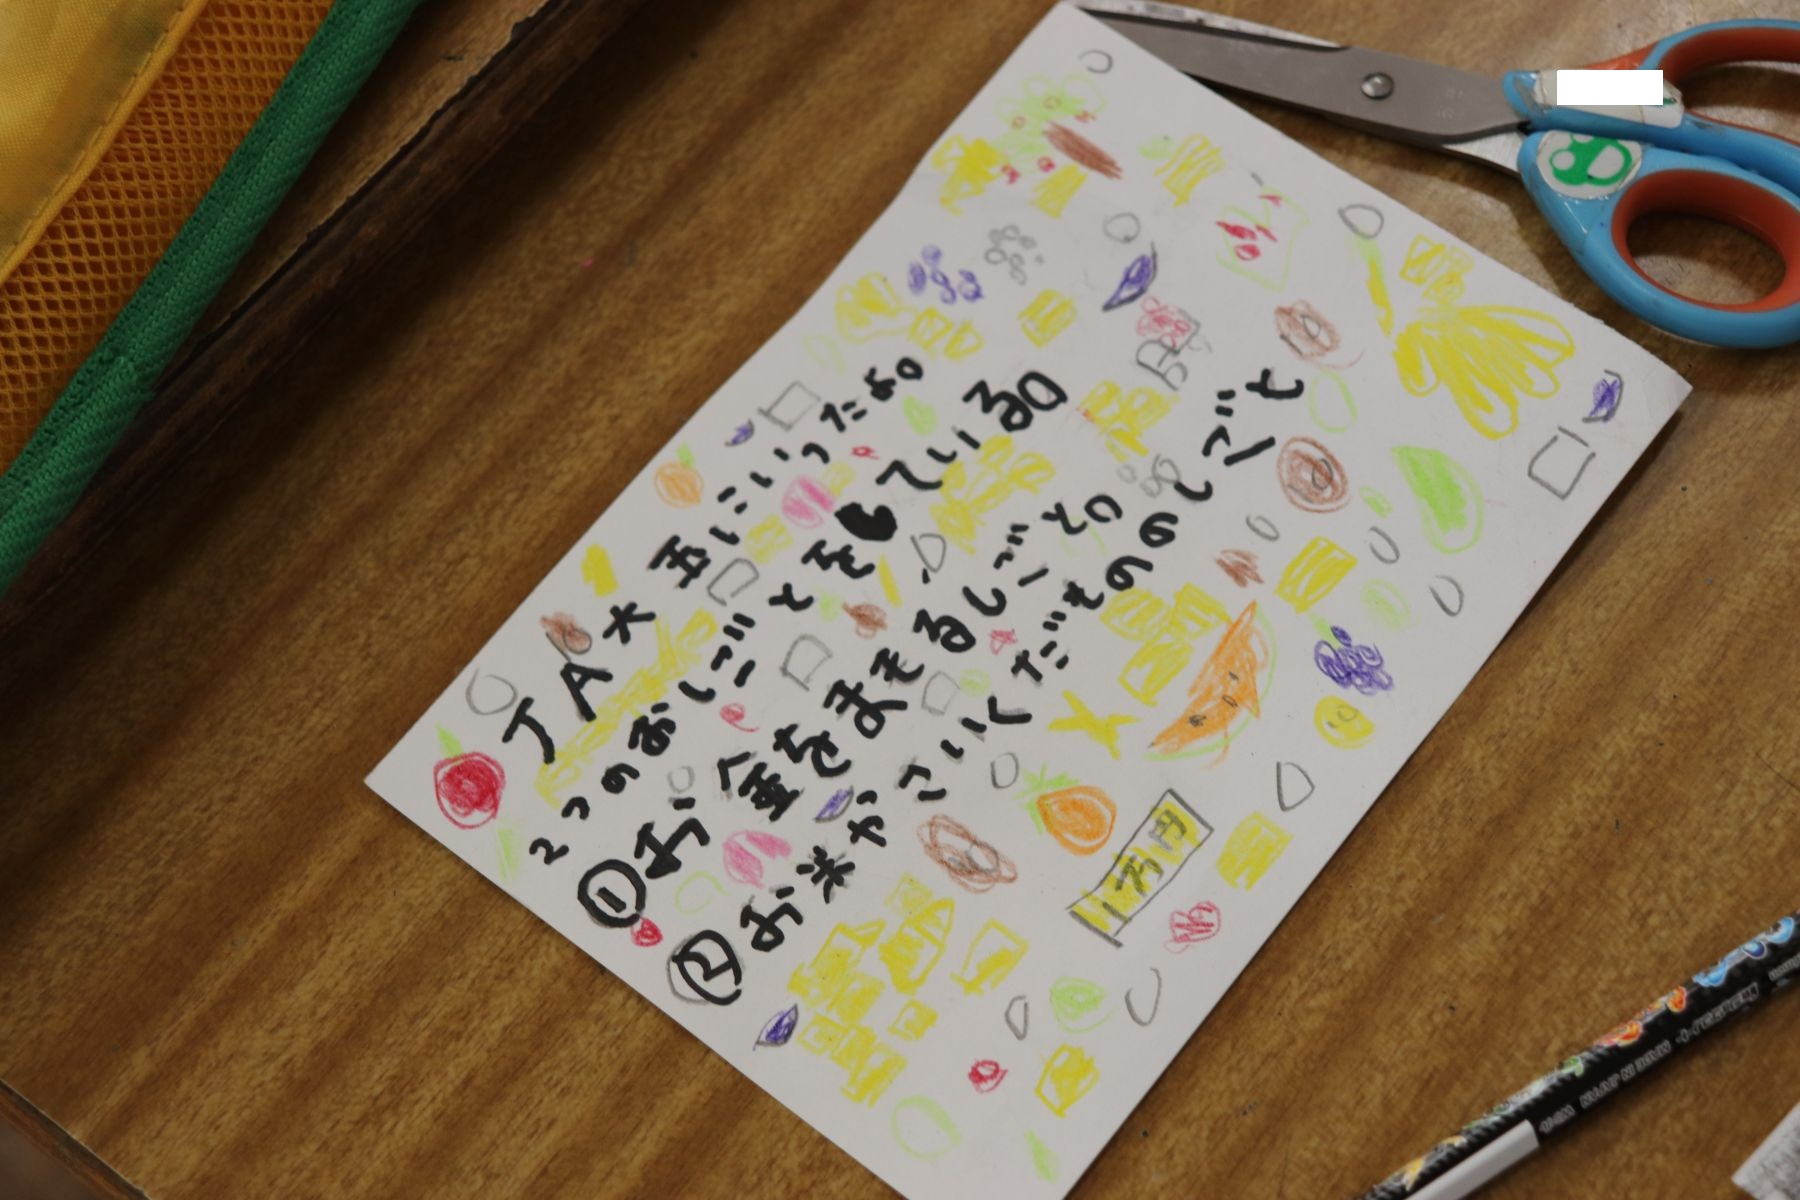 JA大五にいったよ。
2つのおしごとをしている。
①お金をまもるしごと。
②お米やさいくだもののしごと
1万円
MADE IN JAPAN